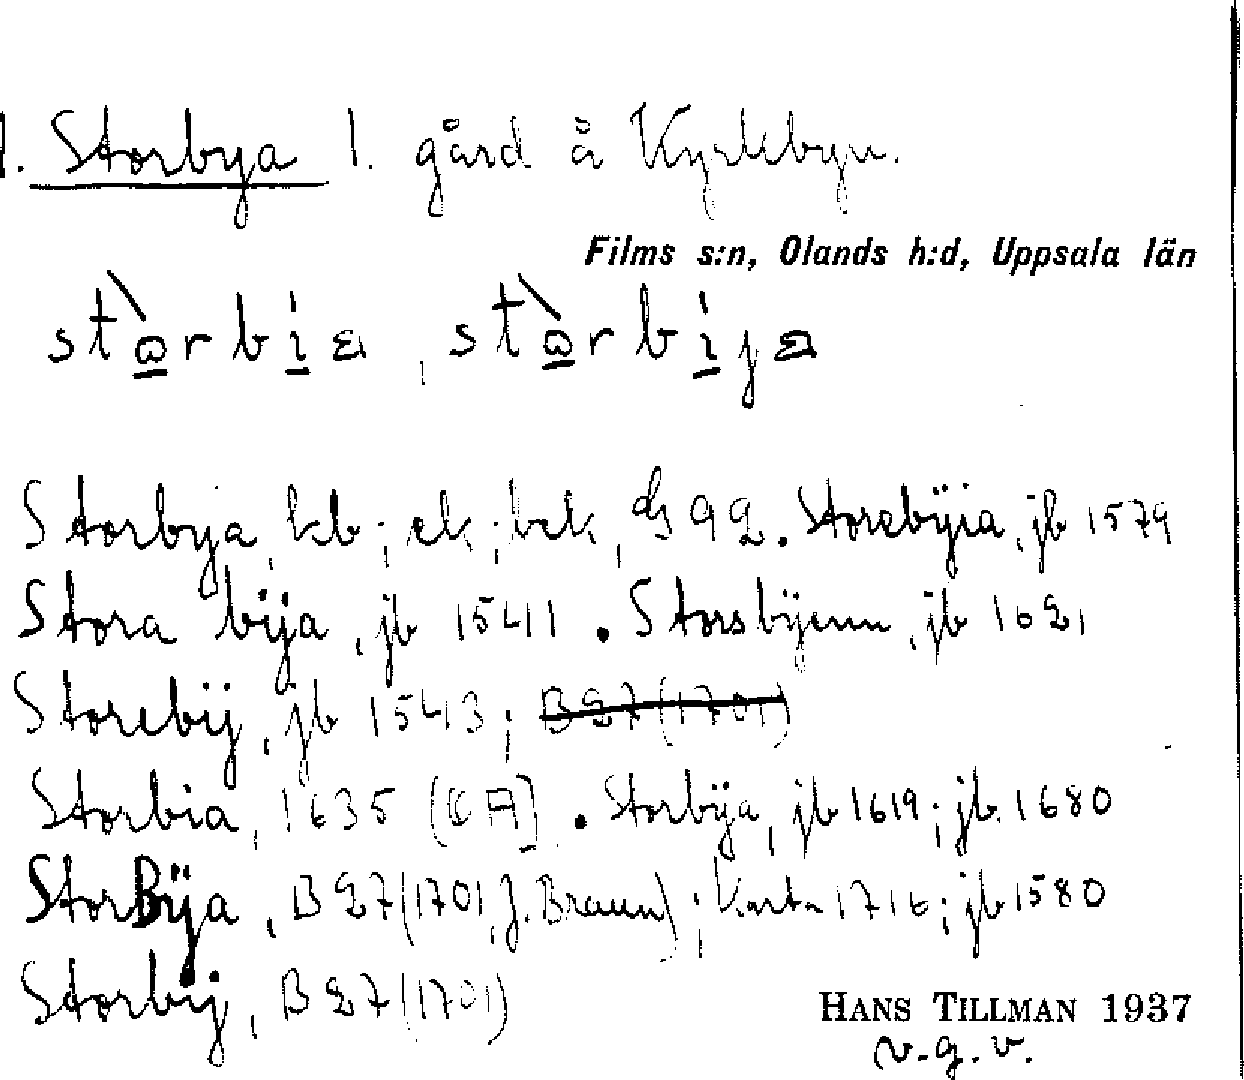 1. Storbya 1. gård å Kyrkbyn.
Films s:n, Olands h:d, Uppsala län
stòrbiа, stòrbija
Storbya, kb; ek; bek, GS 92. Storebÿia, jb 1579
Stora bija, jb 1541. Storsbijenn, jb 1621
Storebij, jb 1543; B27(1701)
Storbia, 1635 (KA). Storbija, jb 1619; jb. 1680
StorBÿa, B27(1701, J. Braun); Karta 1716; jb 1580
Storbij, B27(1701)
HANS TILLMAN 1937
v.g.v.